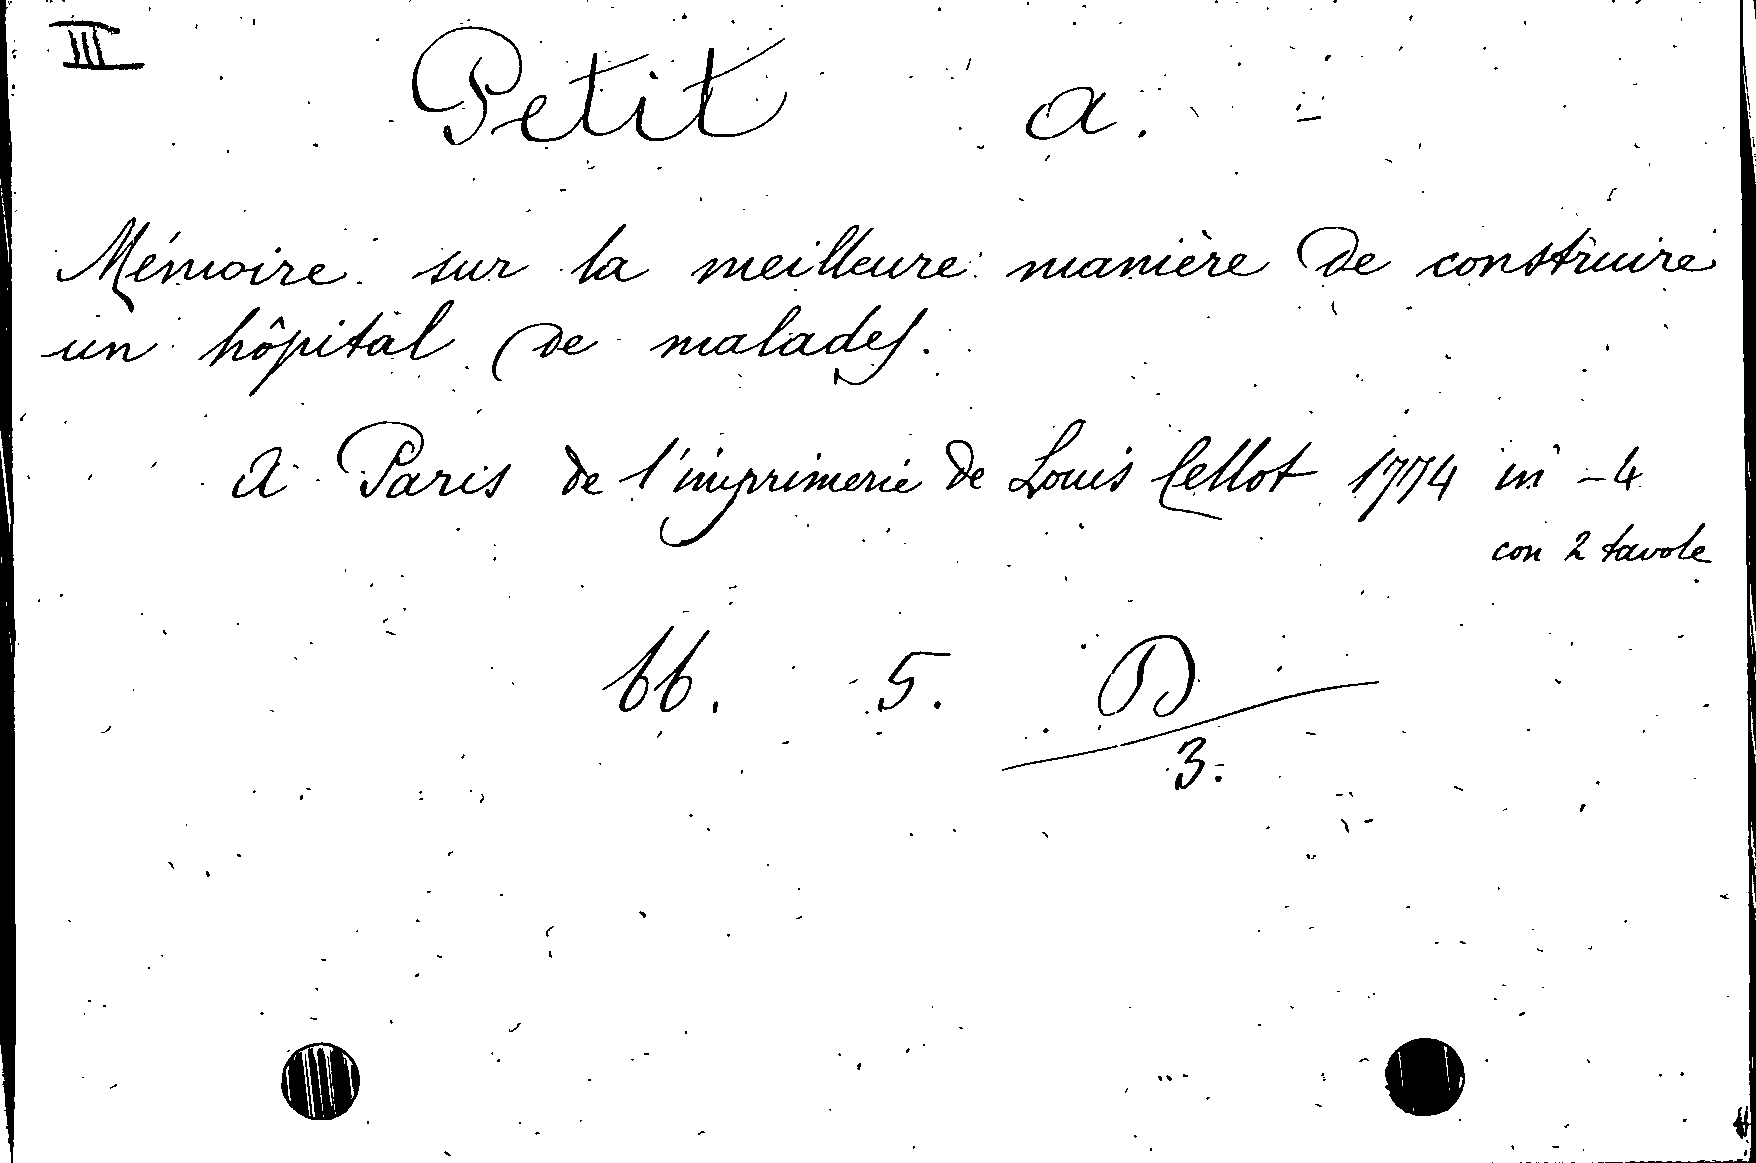 III
Petit A.
Mémoire sur la meilleure manière de construire
un hôpital de malades.
A Paris de l'imprimerie de Louis Cellot 1774 in -4
con 2 tavole
66. 5. D
3.